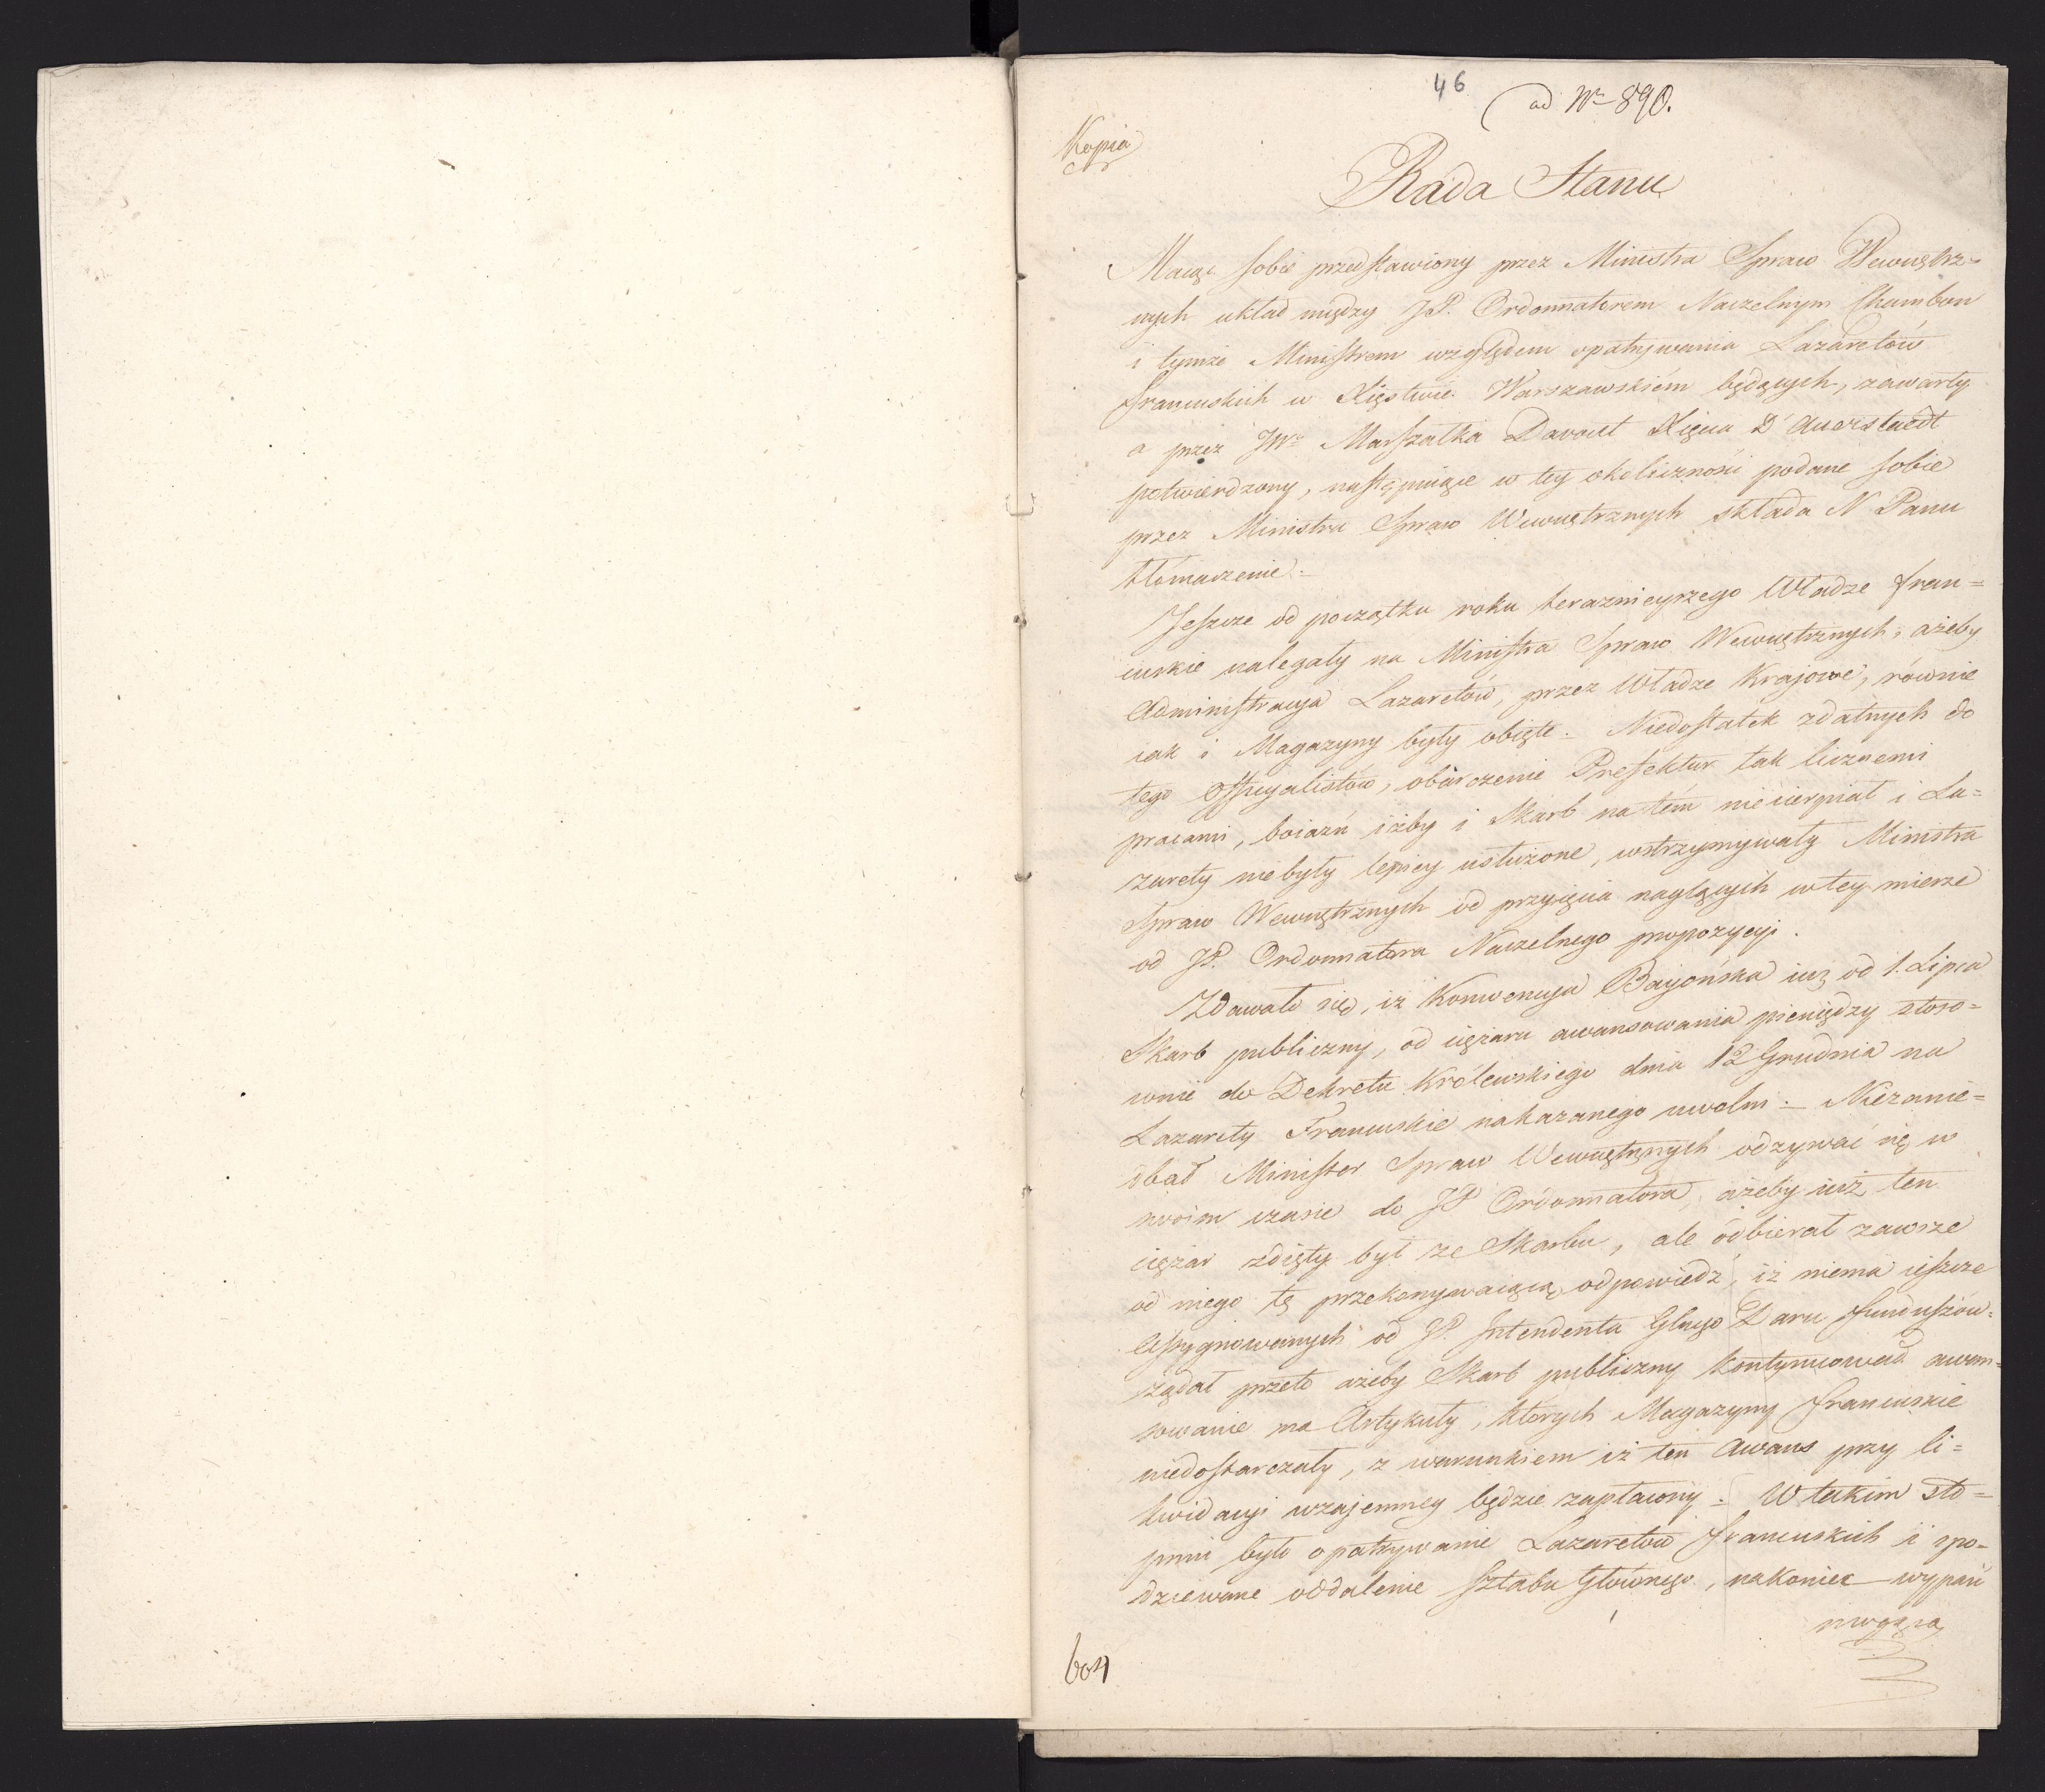 46
ad Nr 890.
Kopia
Rada Stanu
Maiąc sobie przedstawiony przez Ministra Spraw Wewnętrz=
nych układ między JP. Ordonnatorem Naczelnym Chambon
i tymże Ministrem względem opatrywania Lazaretów
francuskich w Xięstwie Warszawskiém będących, zawarty
a przez JW. Marszałka Davout Xięcia D'Auerstaedt
potwierdzony, następuiące w tey okoliczności podane sobie
przez Ministra Spraw Wewnętrznych składa N Panu
tłómaczenie.
Jeszcze od początku roku teraznieyszego Władze fran=
cuskie nalegały na Ministra Spraw Wewnętrznych, ażeby
Administracya Lazaretów, przez Władze Krajowe, równie
iak i Magazyny były obięte. Niedostatek zdatnych do
tego Officyalistów, obarczenie Prefektur tak licznemi
pracami, boiaźń iżby i Skarb na tém nie cierpiał i La=
zarety nie były lepiey usłużone, wstrzymywały Ministra
Spraw Wewnętrznych od przyięcia naglących w tey mierze
od JP. Ordonnatora Naczelnego propozycyi.
Zdawało się, iż Konwencya Bayońska iuż od 1. Lipca
Skarb publiczny, od ciężaru awansowania pieniędzy stoso=
wnie do Dekretu Królewskiego dnia 12 Grudnia na
Lazarety Francuskie nakazanego uwolni. Niezanie=
dbał Minister Spraw Wewnętrznych odzywać się w
swoim czasie do JP Ordonnatora, ażeby iuż ten
ciężar zdięty był ze Skarbu, ale odbierał zawsze
od niego tę przekonywaiącą odpowiedź, iż niema ieszcze
assygnowanych od JP. Intendenta Glnego Daru funduszów.
żądał przeto ażeby Skarb publiczny kontynuował awan=
sowanie na Artykuły, których Magazyny francuskie
niedostarczały, z warunkiem iż ten Awans przy li=
kwidacyi wzajemney będzie zapłacony. W takim sto=
pniu było opatrywanie Lazaretów francuskich i spo=
dziewane oddalenie Sztabu Głównego, nakoniec wypaść
mogąca
604